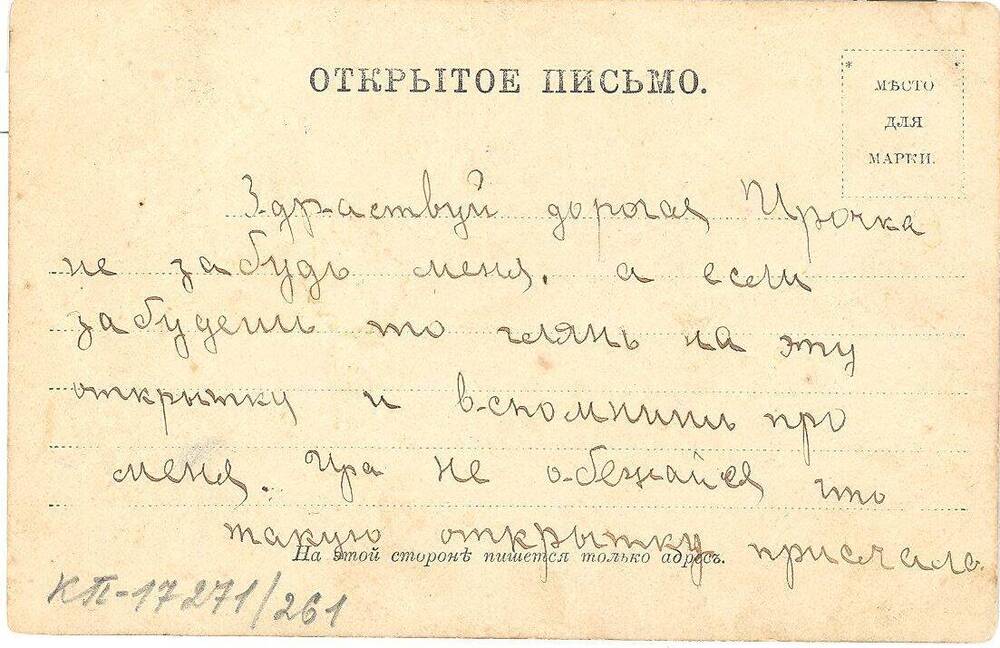 ОТКРЫТОЕ ПИСЬМО.
МѢСТО
ДЛЯ
МАРКИ.
Здраствуй дорогая Ирочка
не забудь меня. а если
забудеш то глянь на эту
открытку и вспомниш про
меня. Ира не обежайся что
такую открытку прислала
На этой сторонѣ пишется только адресъ.
КП-17271/261